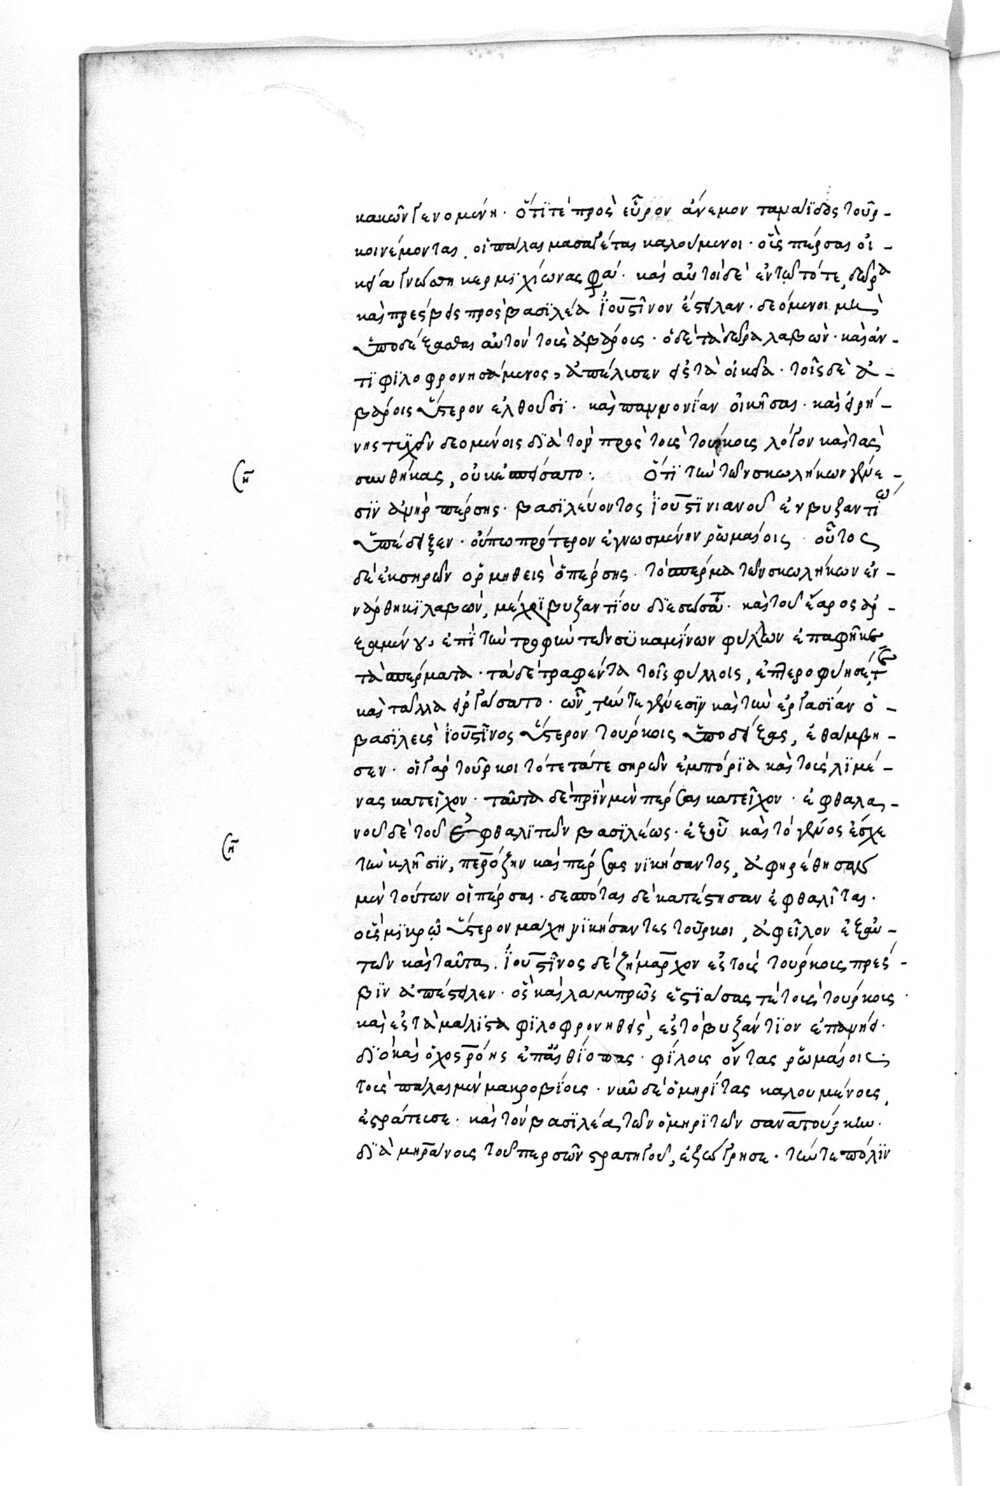 κακῶν γενομένη· ὅτι τε πρὸς εὖρον ἄνεμον ταναϊδος τοῦρ-
κοι νέμονται, οἱ πάλαι μασαγέται καλούμενοι· οὓς πέρσαι οἰ-
κείᾳ γλώσσῃ κερμιχίωνας φασί· καὶ αὐτοὶ δὲ ἐν τῷ τότε, δῶρα
καὶ πρέσβεις πρὸς βασιλέα ἰουστῖνον ἔστειλαν· δεόμενοι μὴ
ὑποδέξασθαι αὐτὸν τοὺς ἀβάρους· ὁ δὲ τὰ δῶρα λαβὼν· καὶ ἀν-
τιφιλοφρονησάμενος, ἀπέλυσεν εἰς τὰ οἰκεῖα· τοῖς δὲ ἀ-
βάροις ὕστερον ἐλθοῦσι· καὶ παννονίαν οἰκῆσαι· καὶ εἰρή-
νης τυχεῖν δεομένοις διὰ τὸν πρὸς τοὺς τούρκους λόγον καὶ τὰς
συνθήκας, οὐκ ἐπείσατο: Ὅτι τὴν τῶν σκωλήκων γένε-
σιν ἀνὴρ πέρσης· βασιλεύοντος ἰουστινιανοῦ ἐν βυζαντίῳ
ὑπέδειξεν· οὔπω πρότερον ἐγνωσμένην ῥωμαίοις· οὗτος
δὲ ἐκ σηρῶν ὁρμηθεὶς ὁ πέρσης· τὸ σπέρμα τῶν σκωλήκων ἐν
νάρθηκι λαβὼν, μέχρι βυζαντίου διεσώσατο· καὶ τοῦ ἔαρος ἀρ-
ξαμένου, ἐπὶ τὴν τροφὴν τῶν συκαμίνων φύλλων ἐπαφῆκε
τὰ σπέρματα· τὰ δὲ τραφέντα τοῖς φύλλοις, ἐπτεροφύησέ τε
καὶ τἄλλα εἰργάσατο· ὧν, τήν τε γένεσιν καὶ τὴν ἐργασίαν ὁ
βασιλεὺς ἰουστῖνος ὕστερον τούρκοις ὑποδείξας, ἐθάμβη-
σεν· οἱ γὰρ τοῦρκοι τότε τά τε σηρῶν ἐμπόρια καὶ τοὺς λιμέ-
νας κατεῖχον· ταῦτα δὲ πρὶν μὲν πέρσαι κατεῖχον· ἐφθαλα-
νοῦ δὲ τοῦ ἐφθαλιτῶν βασιλέως· ἐξ οὗ καὶ τὸ γένος ἔσχε
τὴν κλῆσιν, περόζην καὶ πέρσας νικήσαντος, ἀφηρέθησαν
μὲν τούτων οἱ πέρσαι· δεσπόται δὲ κατέστησαν ἐφθαλῖται·
οὓς μικρῷ ὕστερον μάχῃ νικήσαντες τοῦρκοι, ἀφεῖλον ἐξ αὐ-
τῶν καὶ ταῦτα. Ἰουστῖνος δὲ ζήμαρχον εἰς τοὺς τούρκους πρέσ-
βιν ἀπέστειλεν· ὃς καὶ λαμπρῶς ἑστιάσας τε τοὺς τούρκους·
καὶ ἐς τὰ μάλιστα φιλοφρονηθεὶς, ἐς τὸ βυζάντιον ἐπάνεισι·
διὸ καὶ ὁ χοσρόης ἐπ' αἰθίοπας· φίλους ὄντας ῥωμαίοις·
τοὺς πάλαι μὲν μακροβίους· νῦν δὲ ὁμηρίτας καλουμένους,
ἐστράτευσε· καὶ τὸν βασιλέα τῶν ὁμηριτῶν σανατούρκην·
διὰ μηράνους τοῦ περσῶν στρατηγοῦ, ἐζώγρησε· τήν τε πόλιν